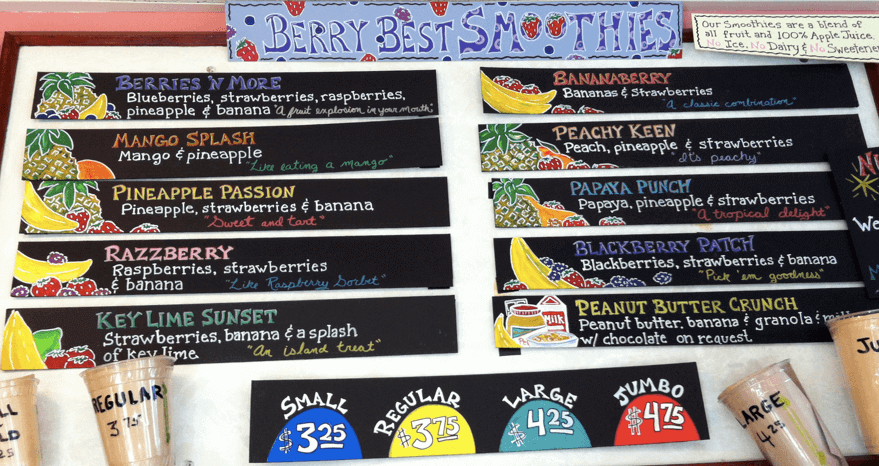 BERRY BEST SMOOTHIES
Our Smoothies are a blend of
all fruit and 100% Apple Juice.
No Ice, No Dairy & No Sweetener
BERRIES 'N MORE
Blueberries, strawberries, raspberries,
pineapple & banana "A fruit explosion in your mouth"
MANGO SPLASH
Mango & pineapple
"Like eating a mango"
PINEAPPLE PASSION
Pineapple, strawberries & banana
"Sweet and tart"
RAZZBERRY
Raspberries, strawberries
& banana "Like Raspberry Sorbet"
KEY LIME SUNSET
Strawberries, banana & a splash
of key lime. "An island treat"
BANANABERRY
Bananas & Strawberries
"A classic combination"
PEACHY KEEN
Peach, pineapple & strawberries
"It's peachy"
PAPAYA PUNCH
Papaya, pineapple & strawberries
"A tropical delight"
BLACKBERRY PATCH
Blackberries, strawberries & banana
"Pick 'em goodness"
MILK
PEANUT BUTTER CRUNCH
Peanut butter, banana & granola & milk
w/ chocolate on request
SMALL
$3.25
REGULAR
$3.75
LARGE
$4.25
JUMBO
$4.75
REGULAR
3.75
LARGE
4.25
Ju
We